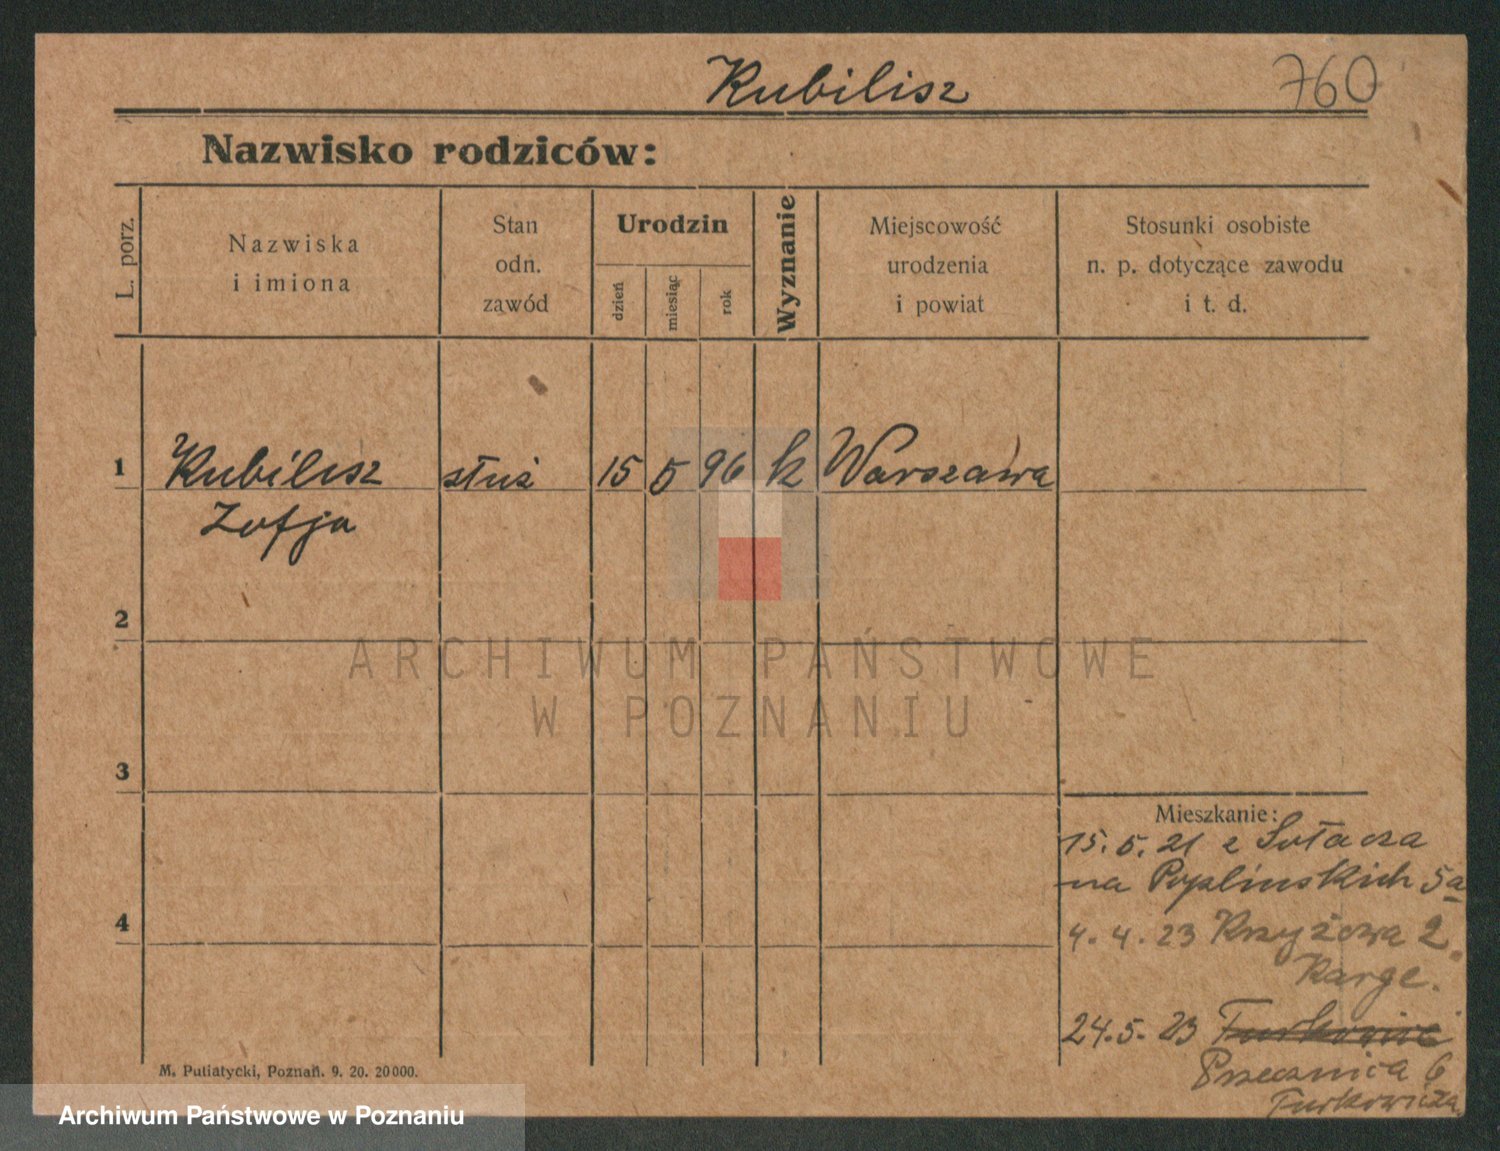 Kubilisz 760
Nazwisko rodziców:
L. porz.
Nazwiska
i imiona
Stan
odn.
zawód
Urodzin
dzień
miesiąc
rok
Wyznanie
Miejscowość
urodzenia
i powiat
Stosunki osobiste
n. p. dotyczące zawodu
i t. d.
1 Kubilisz służ 15 5 96 k Warszawa
Zofja
2
ARCHIWUM PAŃSTWOWE
W POZNANIU
3
Mieszkanie:
15. 5. 21 z Sołacza
na Poplinskich 5a
4
4. 4. 23 Krzyżowa 2.
Karge.
24. 5. 23 Turkowicz
Przecznica 6
Turkowicza
M. Putiatycki, Poznań. 9. 20. 20000.
Archiwum Państwowe w Poznaniu